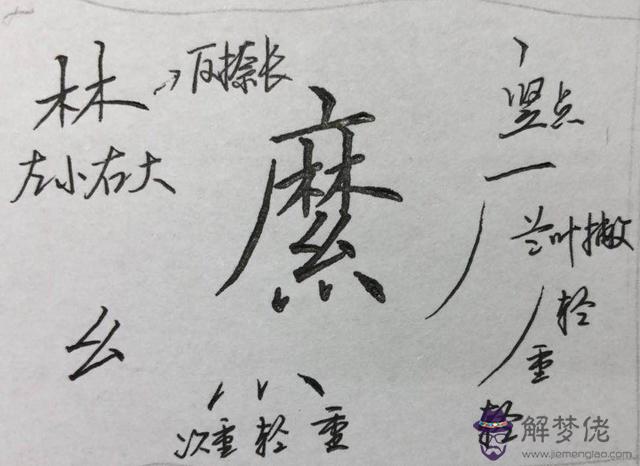 林
反捺长
左小右大
縻
竖点
兰叶撇
轻
重
轻
幺
次重 轻 重
解梦佬
www.jiemenglao.com